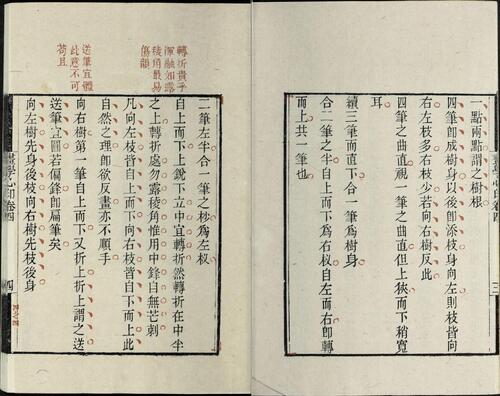 一點兩點謂之樹根
四筆卽成樹身以後卽添枝身向左則枝皆向
右左枝多右枝少若向右樹反此
四筆之曲直視一筆之曲直但上狹而下稍寬
耳
續三筆而直下合一筆爲樹身
合二筆之半自上而下爲右杈自左而右卽轉
而上共一筆也
轉折貴乎
渾融如露
稜角最易
傷韻
送筆宜體
此意不可
苟且
二筆左半合一筆之杪爲左杈
自上而下上銳下立中宜轉折然轉折在中半
之上轉折處勿露稜角惟用中鋒自無芒刺
凡向左枝皆自上而下向右枝皆自下而上此
自然之理卽欲反畫亦不順手
向右樹第一筆自上而下又折上折上謂之送
送筆宜圓若偏鋒卽扁筆矣
向左樹先身後枝向右樹先枝後身
畫學心印卷四
四